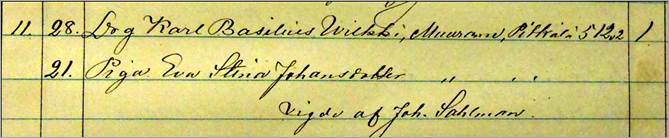 11. 28. Drg Karl Basilius Wilkki, Muurame, Pitkälä 5 12 1
21. Piga Eva Stina Johansdotter " "
Vigde af Joh. Sahlman.